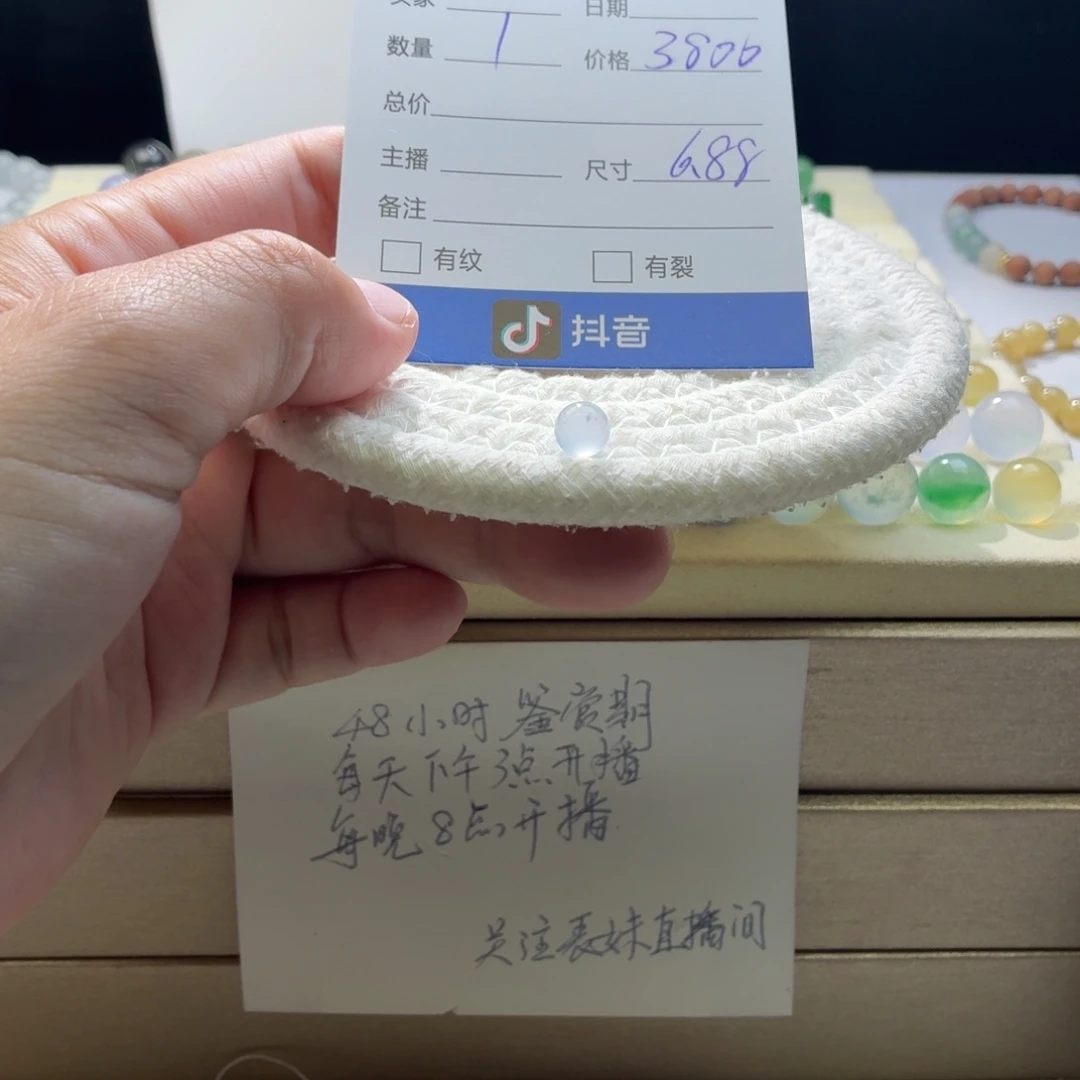 买家 日期
数量 1 价格 3800
总价
主播 尺寸 6.88
备注
有纹 有裂
抖音
48小时 鉴赏期
每天下午3点开播
每晚8点开播
关注表妹直播间